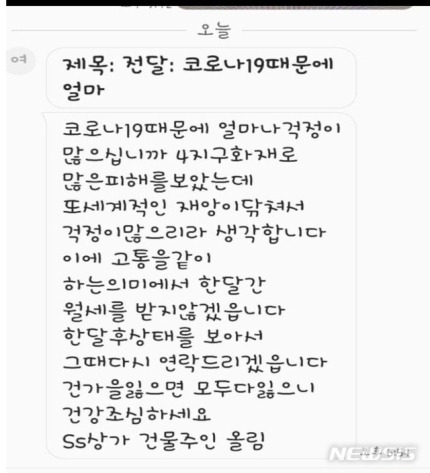 오늘
여
제목: 전달: 코로나19때문에
얼마
코로나19때문에 얼마나걱정이
많으십니까 4지구화재로
많은피해를보았는데
또세계적인 재앙이닦쳐서
걱정이많으리라 생각합니다
이에 고통을같이
하는의미에서 한달간
월세를 받지않겠읍니다
한달후상태를 보아서
그때다시 연락드리겠읍니다
건가을잃으면 모두다잃으니
건강조심하세요
SS상가 건물주인 올림
NEWSIS